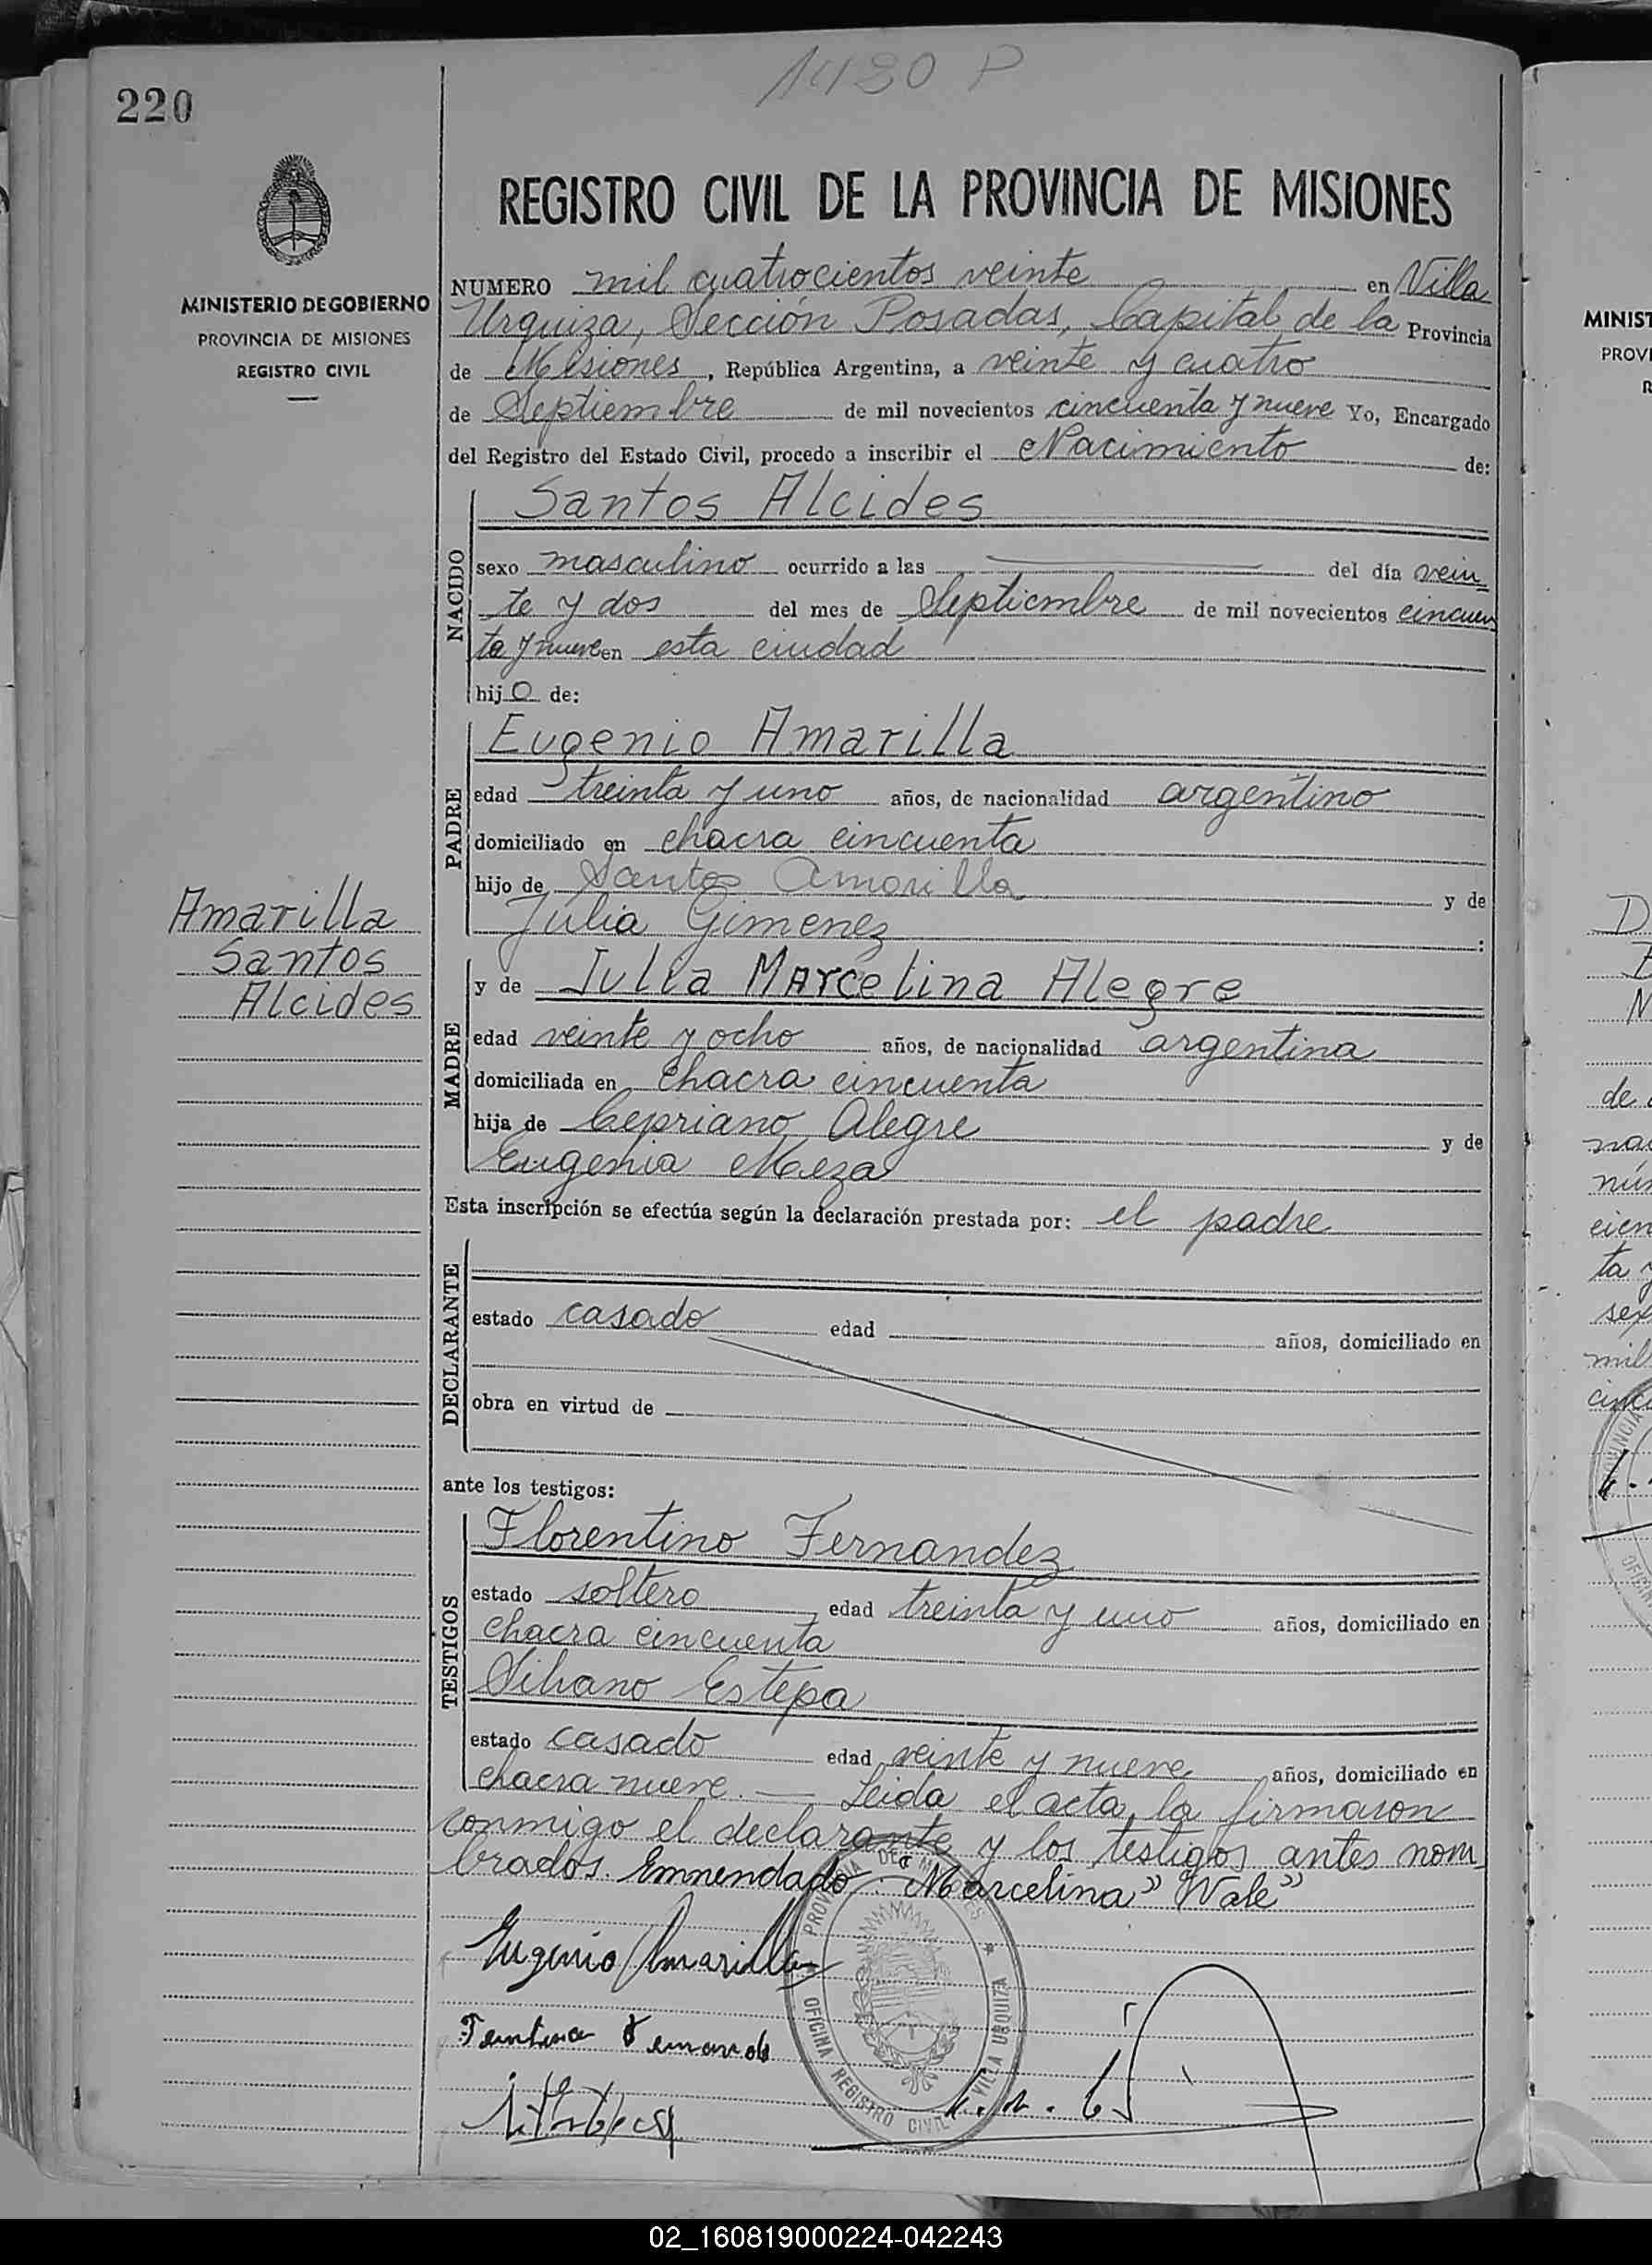 1420 P
220
REGISTRO CIVIL DE LA PROVINCIA DE MISIONES
MINISTERIO DE GOBIERNO
PROVINCIA DE MISIONES
REGISTRO CIVIL
NUMERO mil cuatrocientos veinte en Villa
Urquiza, Sección Posadas, Capital de la Provincia
de Misiones, República Argentina, a veinte y cuatro
de Septiembre de mil novecientos cincuenta y nueve Yo, Encargado
del Registro del Estado Civil, procedo a inscribir el Nacimiento de:
NACIDO
Santos Alcides
sexo masculino ocurrido a las del día vein
te y dos del mes de Septiembre de mil novecientos cincuen
ta y nueve en esta ciudad
hijo de:
PADRE
Eugenio Amarilla
edad treinta y uno años, de nacionalidad argentino
domiciliado en chacra cincuenta
hijo de Santos Amarilla y de
Julia Gimenez :
Amarilla
Santos
Alcides
MADRE
y de Julia Marcelina Alegre
edad veinte y ocho años, de nacionalidad argentina
domiciliada en chacra cincuenta
hija de Cepriano Alegre y de
Eugenia Meza
Esta inscripción se efectúa según la declaración prestada por: el padre
DECLARANTE
estado casado edad años, domiciliado en
obra en virtud de
ante los testigos:
TESTIGOS
Florentino Fernandez
estado soltero edad treinta y uno años, domiciliado en
chacra cincuenta
Silvano Estepa
estado casado edad veinte y nueve años, domiciliado en
chacra nueve. — Leida el acta, la firmaron
conmigo el declarante y los testigos antes nom
brados. Emnendado: "Marcelina" Vale"
Eugenio Amarilla
PROVINCIA DE MISIONES
OFICINA REGISTRO CIVIL VILLA URQUIZA
MINIST
PROVI
R
D
de
na
nú
cien
ta y
sex
mil
cinc
02_160819000224-042243